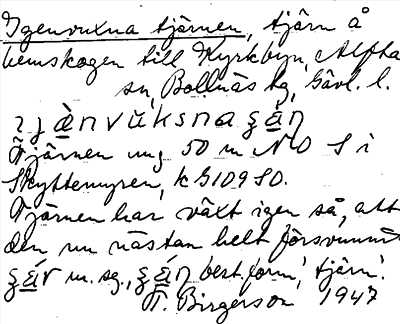 Igenvuxna tjärnen, tjärn å
hemskogen till Kyrkbyn, Alfta
sn, Bollnäs tg, Gävl. l.
ìjènvùksna ʂä́ɳ
Tjärnen ung 50 m NO S i
Skyttemyren, k G109 SO.
Tjärnen har växt igen så, att
den nu nästan helt försvunnit
ʂä́r m. sg., ʂä́ɳ best. form, 'tjärn'.
T. Birgerson 1947